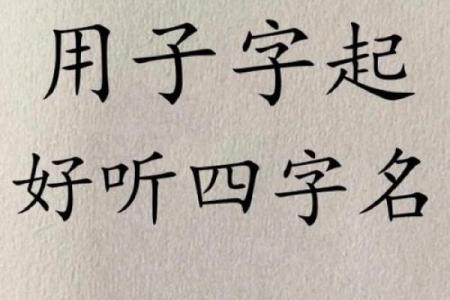 用子字起
好听四字名